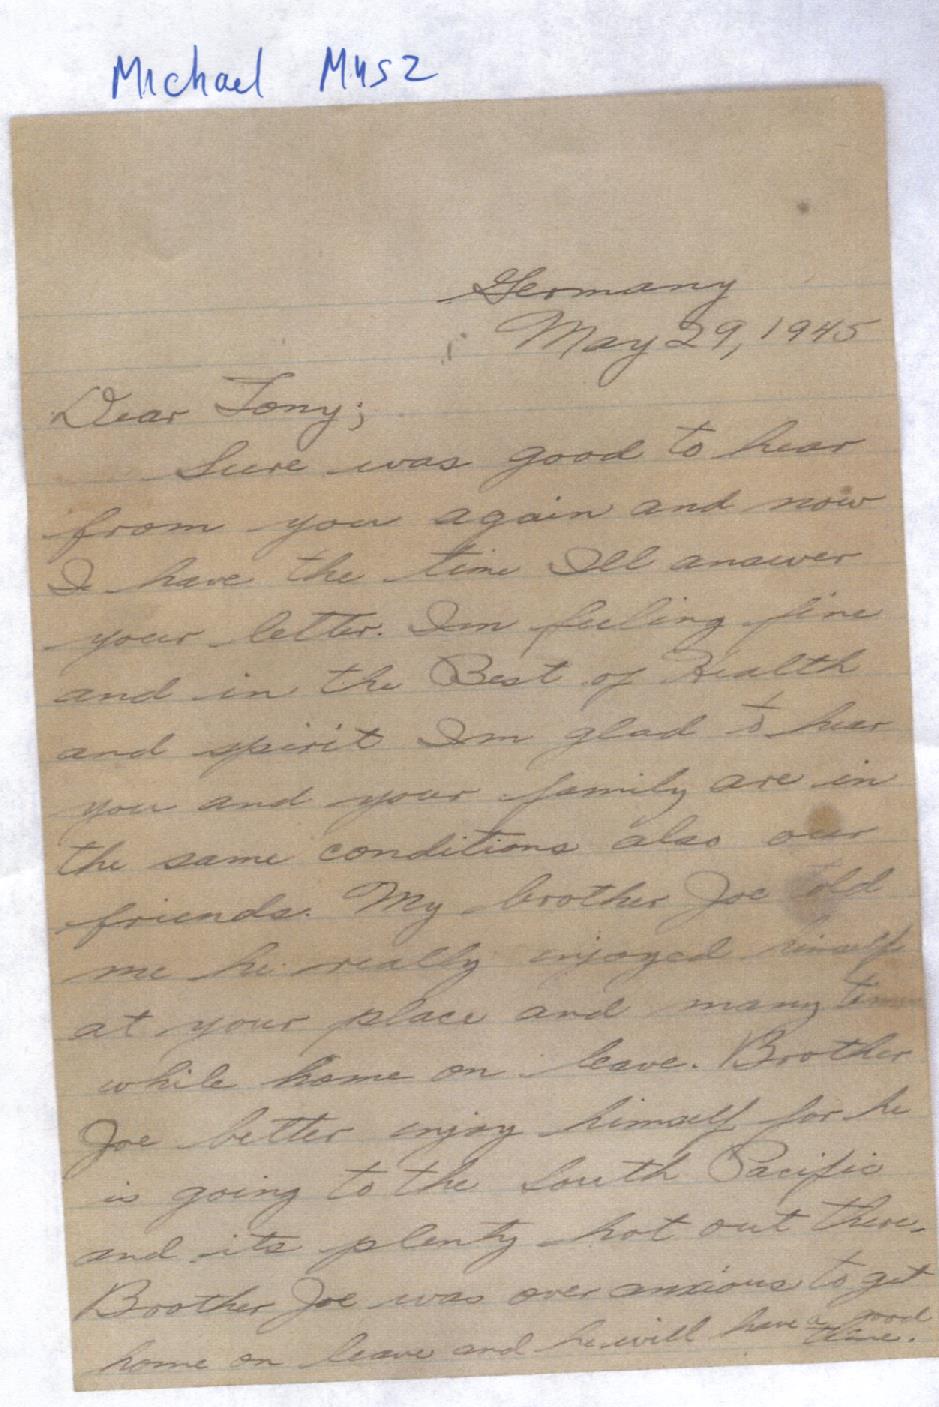 Michael Musz
Germany
May 29, 1945
Dear Tony;
Sure was good to hear
from you again and now
I have the time Ill answer
your letter. Im feeling fine
and in the Best of Health
and spirit Im glad to hear
you and your family are in
the same conditions also our
friends. My brother Joe told
me he really enjoyed himself
at your place and many times
while home on leave. Brother
Joe better enjoy himself for he
is going to the South Pacific
and its plenty hot out there.
Brother Joe was over anxious to get
home on leave and he will have a good
time.